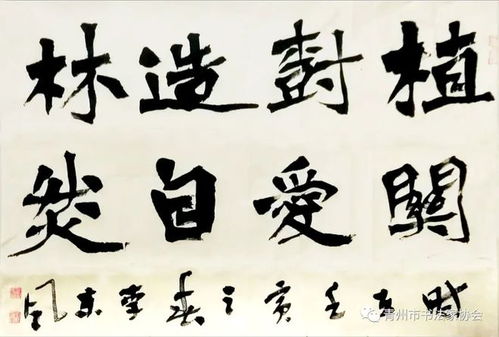 植樹造林
關愛自然
時在壬寅之春李東風
青州市书法家协会